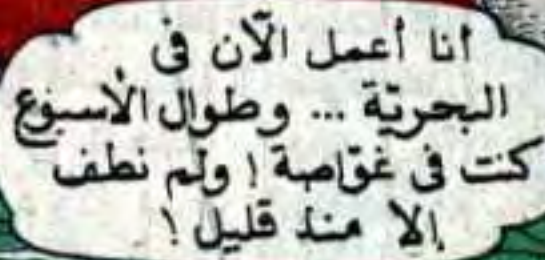 أنا أعمل الآن فى
البحريّة ... وطوال الأسبوع
كنت فى غوّاصة ! ولم نطف
إلا منذ قليل !